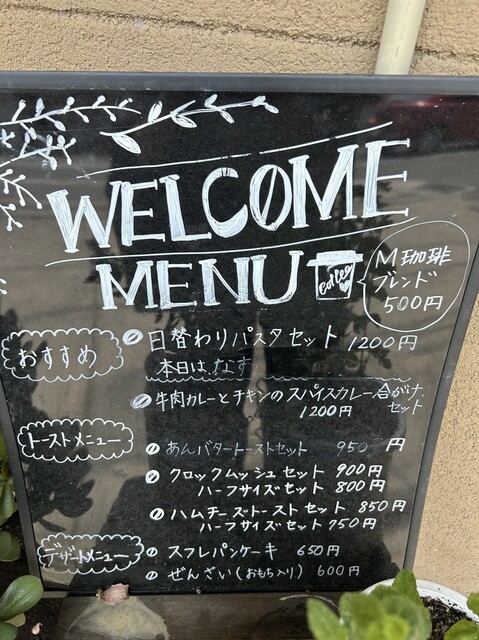 WELCOME
MENU
Coffee
M珈琲
ブレンド
500円
おすすめ
日替わりパスタセット 1200円
本日は なす
牛肉カレーとチキンのスパイスカレー合がけ
セット
1200円
トーストメニュー
あんバタートーストセット 950円
クロックムッシュセット 900円
ハーフサイズセット 800円
ハムチーズトーストセット 850円
ハーフサイズセット 750円
デザートメニュー
スフレパンケーキ 650円
ぜんざい(おもち入り) 600円